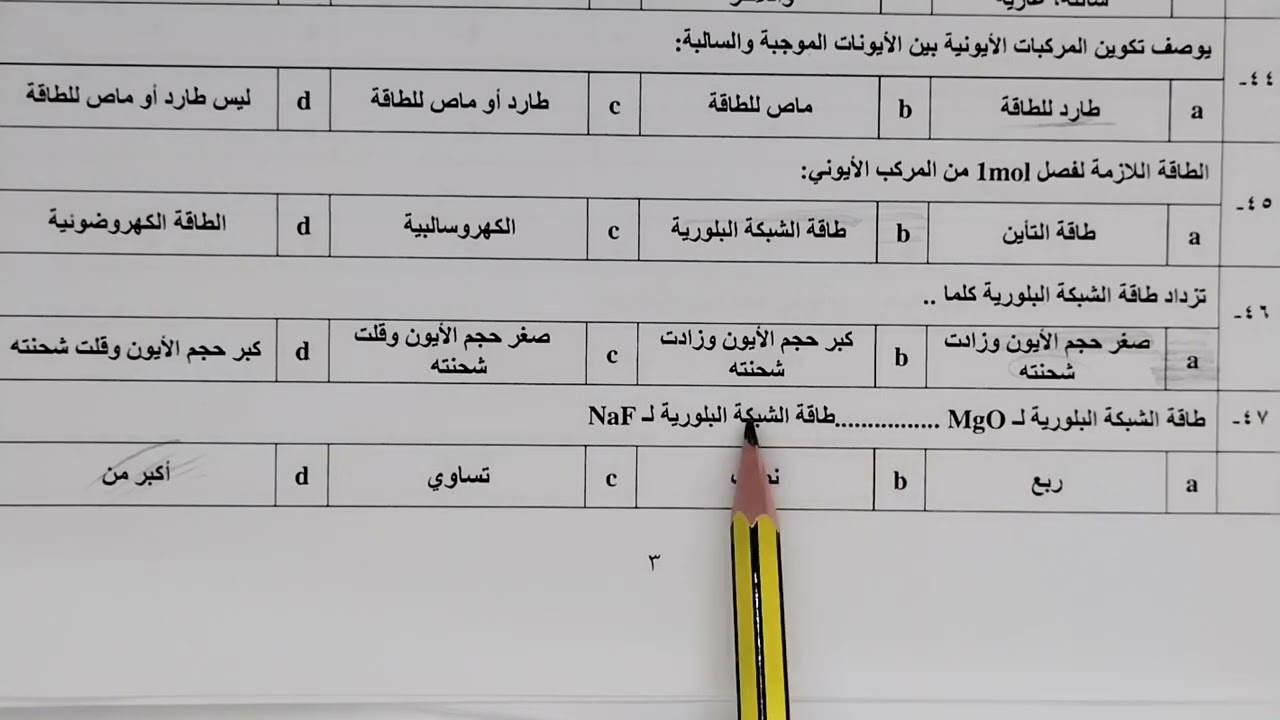 ٤٤- يوصف تكوين المركبات الأيونية بين الأيونات الموجبة والسالبة:
a طارد للطاقة b ماص للطاقة c طارد أو ماص للطاقة d ليس طارد أو ماص للطاقة
٤٥- الطاقة اللازمة لفصل 1mol من المركب الأيوني:
a طاقة التأين b طاقة الشبكة البلورية c الكهروسالبية d الطاقة الكهروضوئية
٤٦- تزداد طاقة الشبكة البلورية كلما ..
a صغر حجم الأيون وزادت شحنته b كبر حجم الأيون وزادت شحنته c صغر حجم الأيون وقلت شحنته d كبر حجم الأيون وقلت شحنته
٤٧- طاقة الشبكة البلورية لـ MgO ................طاقة الشبكة البلورية لـ NaF
a ربع b c تساوي d أكبر من
٣